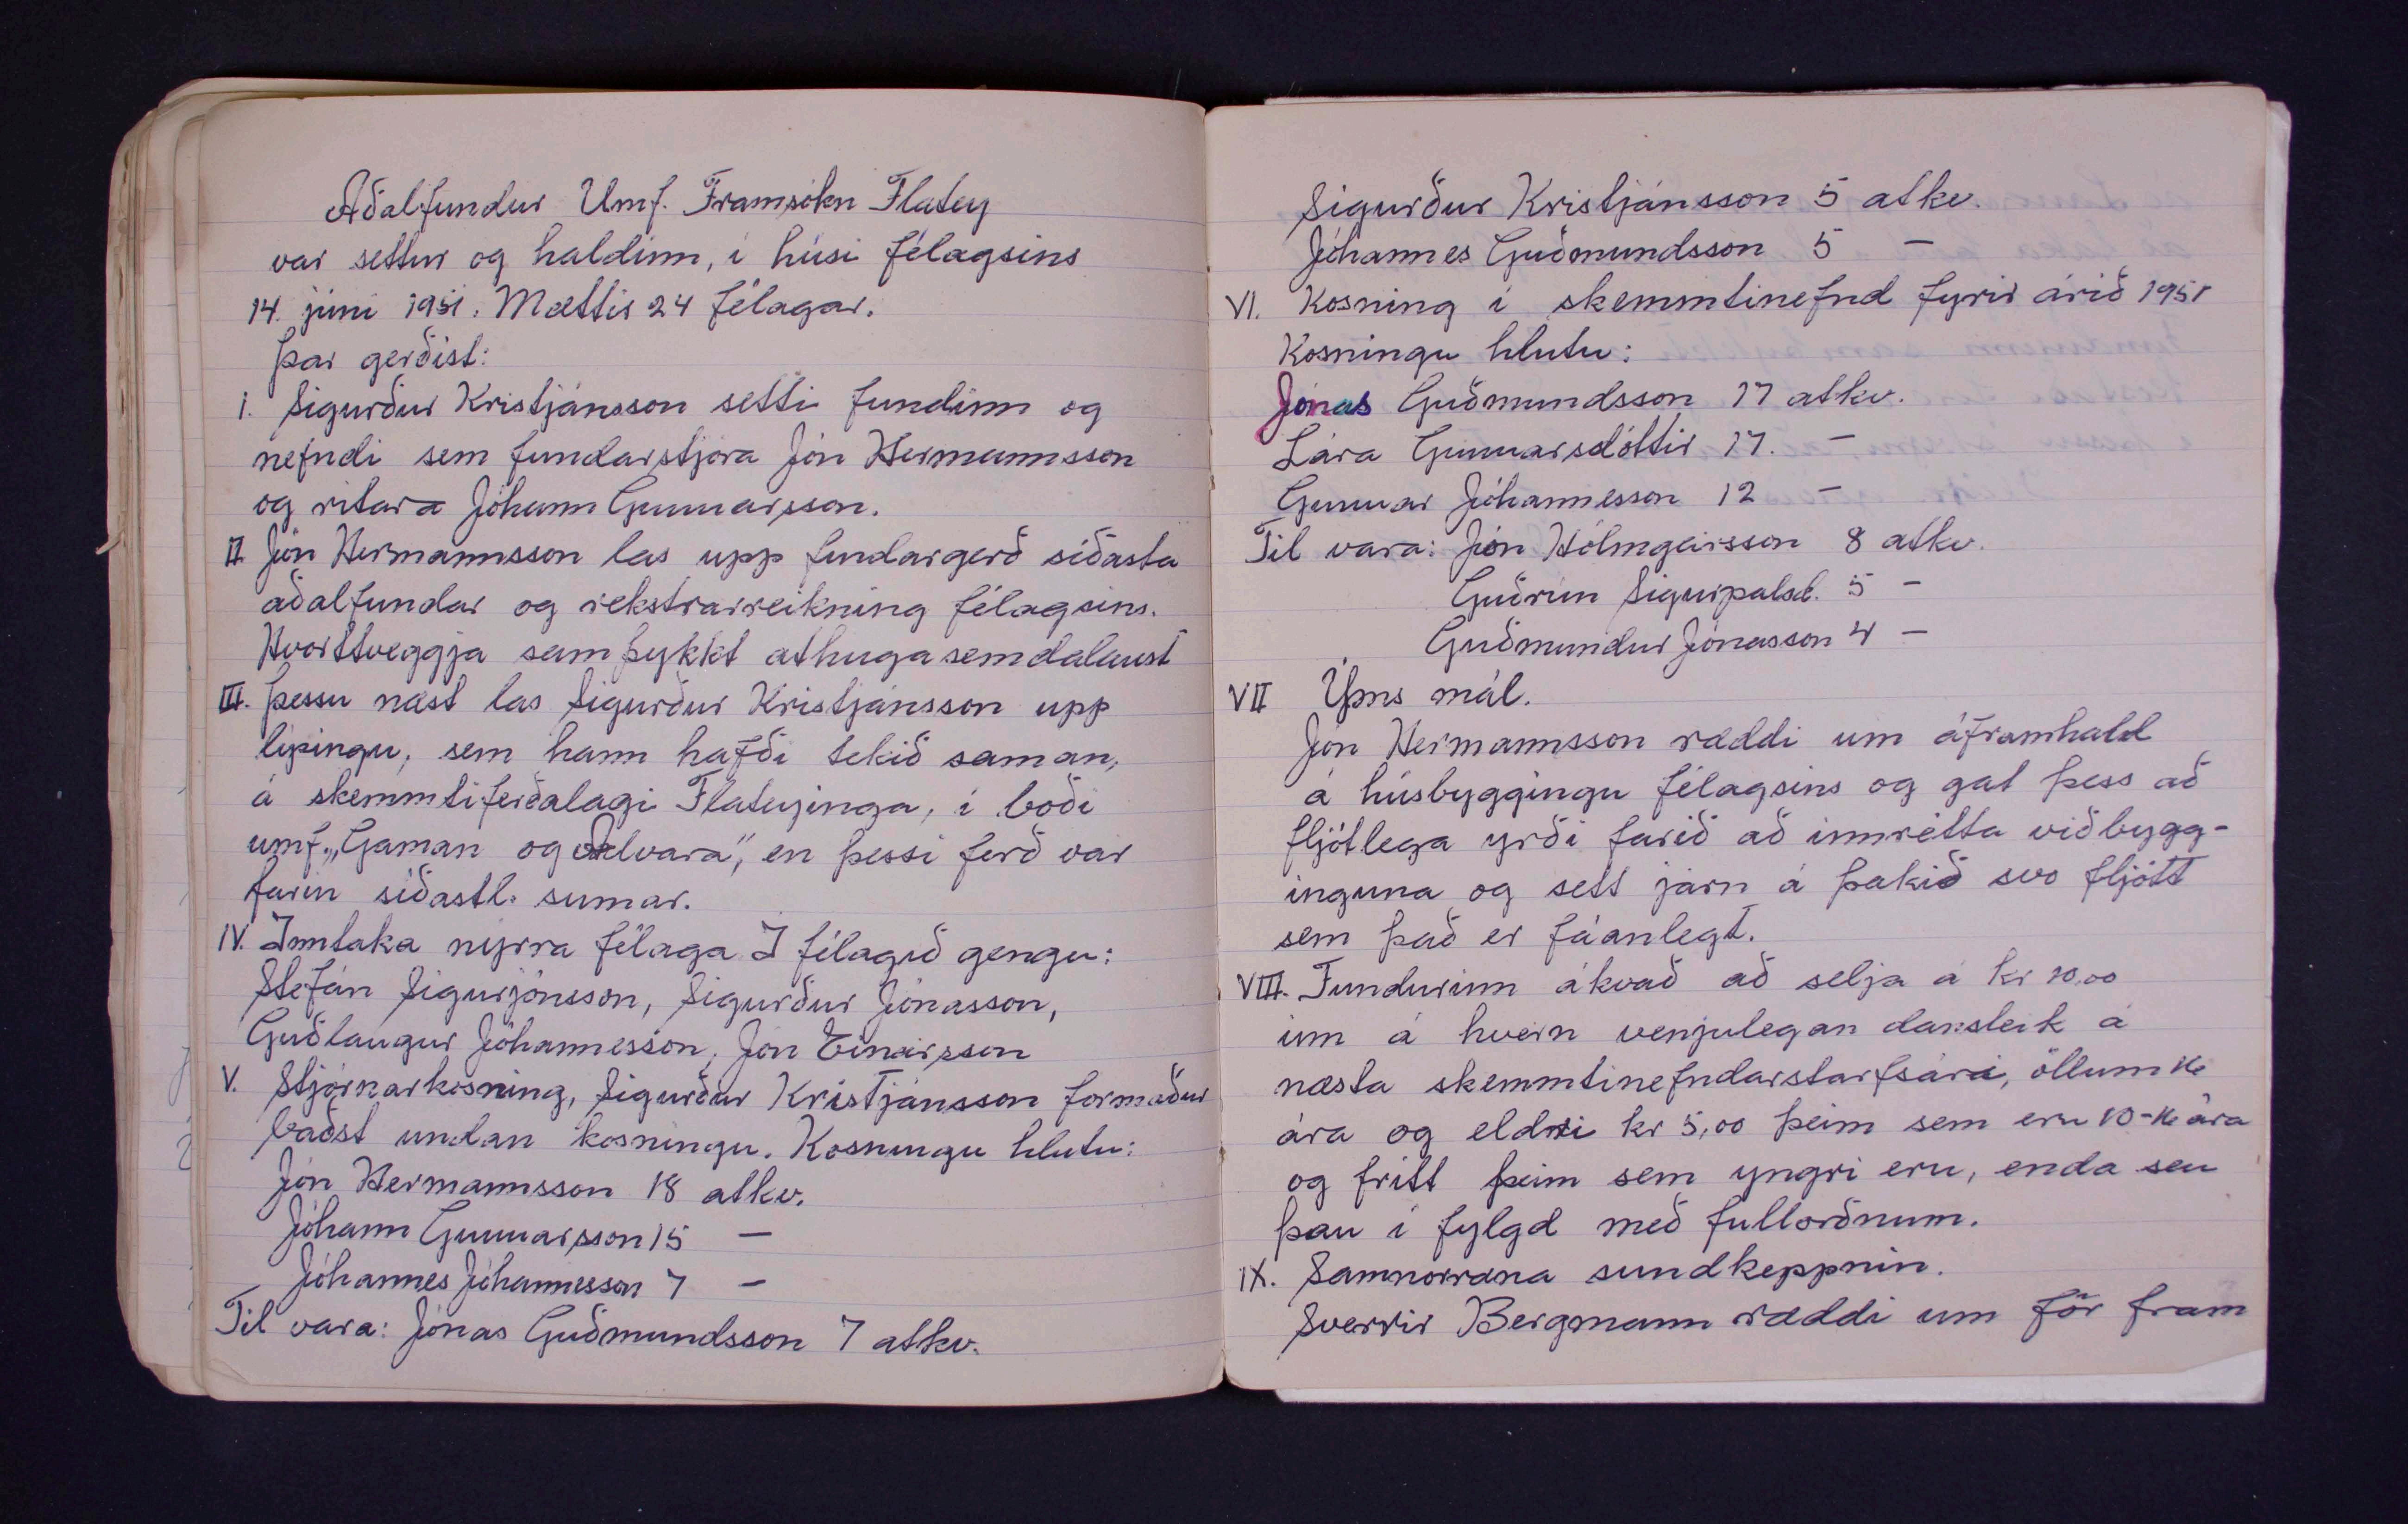 Aðalfundur Umf. Framsókn Flatey
var settur og haldinn, í húsi félagsins
14. júní 1951. Mættir 24 félagar.
Þar gerðist:
I. Sigurður Kristjánsson setti fundinn og
nefndi sem fundarstjóra Jón Hermannsson
og ritara Jóhann Gunnarsson.
II. Jón Hermannsson las upp fundargerð síðasta
aðalfundar og rekstrarreikning félagsins.
Hvorttveggja samþykkt athugasemdalaust
III. Þessu næst las Sigurður Kristjánsson upp
lýsingu, sem hann hafði tekið saman,
á skemmtiferðalagi Flateyinga, í boði
umf. „Gaman og Alvara", en þessi ferð var
farin síðastl. sumar.
IV. Inntaka nýrra félaga Í félagið gengu:
Stefán Sigurjónsson, Sigurður Jónasson,
Guðlaugur Jóhannesson, Jón Einarsson
V. Stjórnarkosning, Sigurður Kristjánsson formaður
baðst undan kosningu. Kosningu hlutu:
Jón Hermannsson 18 atkv.
Jóhann Gunnarsson 15 —
Jóhannes Jóhannesson 7 —
Til vara: Jónas Guðmundsson 7 atkv.
Sigurður Kristjánsson 5 atkv.
Jóhannes Guðmundsson 5 —
VI. Kosning í skemmtinefnd fyrir árið 1951
Kosningu hlutu:
Jónas Guðmundsson 17 atkv.
Lára Gunnarsdóttir 17. —
Gunnar Jóhannesson 12 —
Til vara: Jón Hólmgeirsson 8 atkv.
Guðrún Sigurpalsd. 5 —
Guðmundur Jónasson 4 —
VII Ýms mál.
Jón Hermannsson ræddi um áframhald
á húsbyggingu félagsins og gat þess að
fljótlega yrði farið að innrétta viðbygg-
inguna og sett járn á þakið svo fljótt
sem það er fáanlegt.
VIII. Fundurinn ákvað að selja á kr 10,00
inn á hvern venjulegan dansleik á
næsta skemmtinefndarstarfsári, öllum 16
ára og eldri kr 5,00 þeim sem eru 10-16 ára
og frítt þeim sem yngri eru, enda seu
þau í fylgd með fullorðnum.
IX. Samnorræna sundkeppnin.
Sverrir Bergmann ræddi um för fram